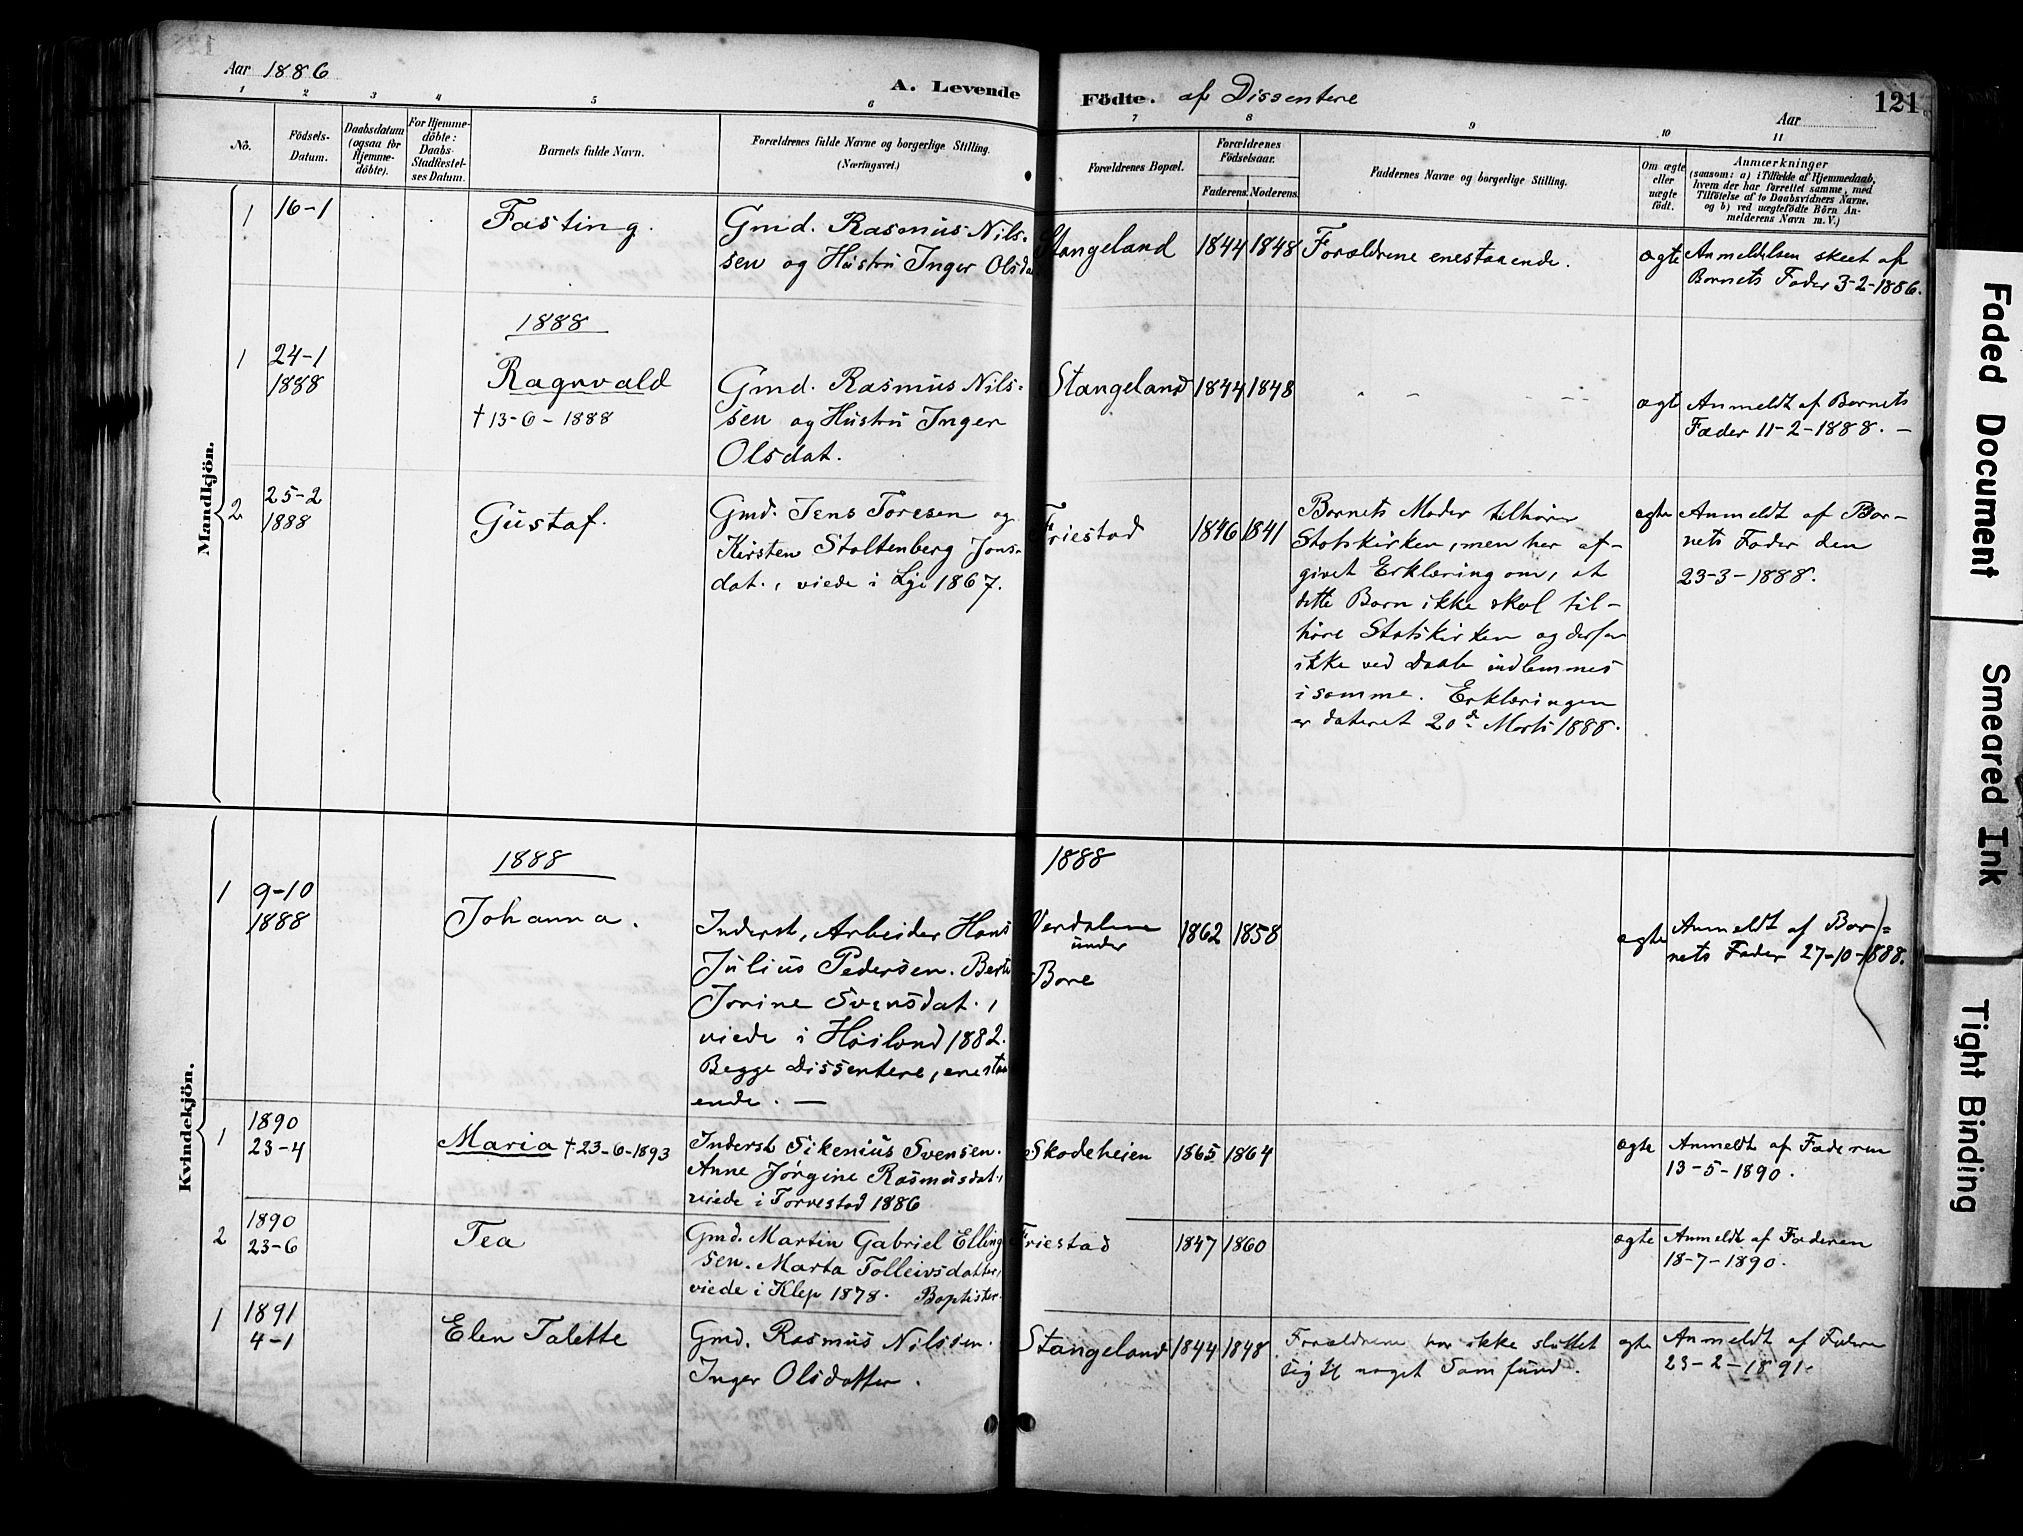 Aar 1886
A. Levende Födte. af Dissentere
121
Aar
1 2 3 4 5 6 7 8 9 10 11
No.
Födsels-Datum.
Daabsdatum (ogsaa for Hjemme-döbte).
For Hjemme-döbte: Daabs-Stadfæstel-ses Datum.
Barnets fulde Navn.
Forældrenes fulde Navne og borgerlige Stilling. (Næringsvei.)
Forældrenes Bopæl.
Forældrenes Födselsaar.
Faderens. Moderens.
Faddernes Navne og borgerlige Stilling.
Om ægte eller uægte födt.
Anmærkninger
(saasom: a) i Tilfælde af Hjemmedaab, hvem der har forrettet samme, med Tilföielse af to Daabsvidners Navne. og b) ved uægtefödte Börn An-melderens Navn m. V.)
Mandkjön.
1 16-1 Fasting.
Gmd. Rasmus Nils-
sen og Hustru Inger Olsdat
Stangeland 1844 1848 Forældrene enestaaende. ægte
Anmeldelsen skeet af
Barnets Fader 3-2-1886.
1888
1 24-1
1888
Ragnvald
† 13-6-1888
Gmd. Rasmus Nils-
sen og Hustru Inger
Olsdat.
Stangeland 1844 1848 " " -- ægte
Anmeldt af Barnets
Fader 11-2-1888. —
2 25-2
1888
Gustaf.
Gmd. Jens Toresen og
Kirsten Stoltenberg Jons-
dat., viede i Lye 1867.
Friestad 1846 1841
Barnets Moder tilhører
Statskirken, men har af-
givet Erklæring om, at
dette Barn ikke skal til-
høre Statskirken og derfor
ikke ved Daab indlemmes
i samme. Erklæringen
er dateret 20d Marts 1888.
ægte
Anmeldt af Bar-
nets Fader den
23-3-1888.
Kvindekjön.
1888
1888
1 9-10
1888
Johanna.
Inderst, Arbeider Hans
Julius Pedersen. Berte
Jorine Svensdat.,
viede i Høiland 1882.
Begge Dissentere, enestaa
ende. —
Verdalen
under
Bore
1862 1858 ægte
Anmeldt af Bar-
nets Fader 27-10-1888.
1 1890
23-4
Maria † 23-6-1893
Inderst Sikenius Svensen.
Anne Jørgine Rasmusdat.,
viede i Torvestad 1886
Skadeheien 1865 1864 ægte
Anmeldt af Faderen
13-5-1890.
2 1890
23-6
Tea
Gmd. Martin Gabriel Elling
sen. Marta Tolleivsdatter,
viede i Klep 1878. Baptister.
Friestad 1847 1860 ægte
Anmeldt af Faderen
18-7-1890.
1 1891
4-1
Elen Talette
Gmd. Rasmus Nilssen.
Inger Olsdatter.
Stangeland 1844 1848
Forældrene har ikke sluttet
sig til noget Samfund.
ægte
Anmeldt af Faderen
23-2-1891.
Faded Document
Smeared Ink
Tight Binding